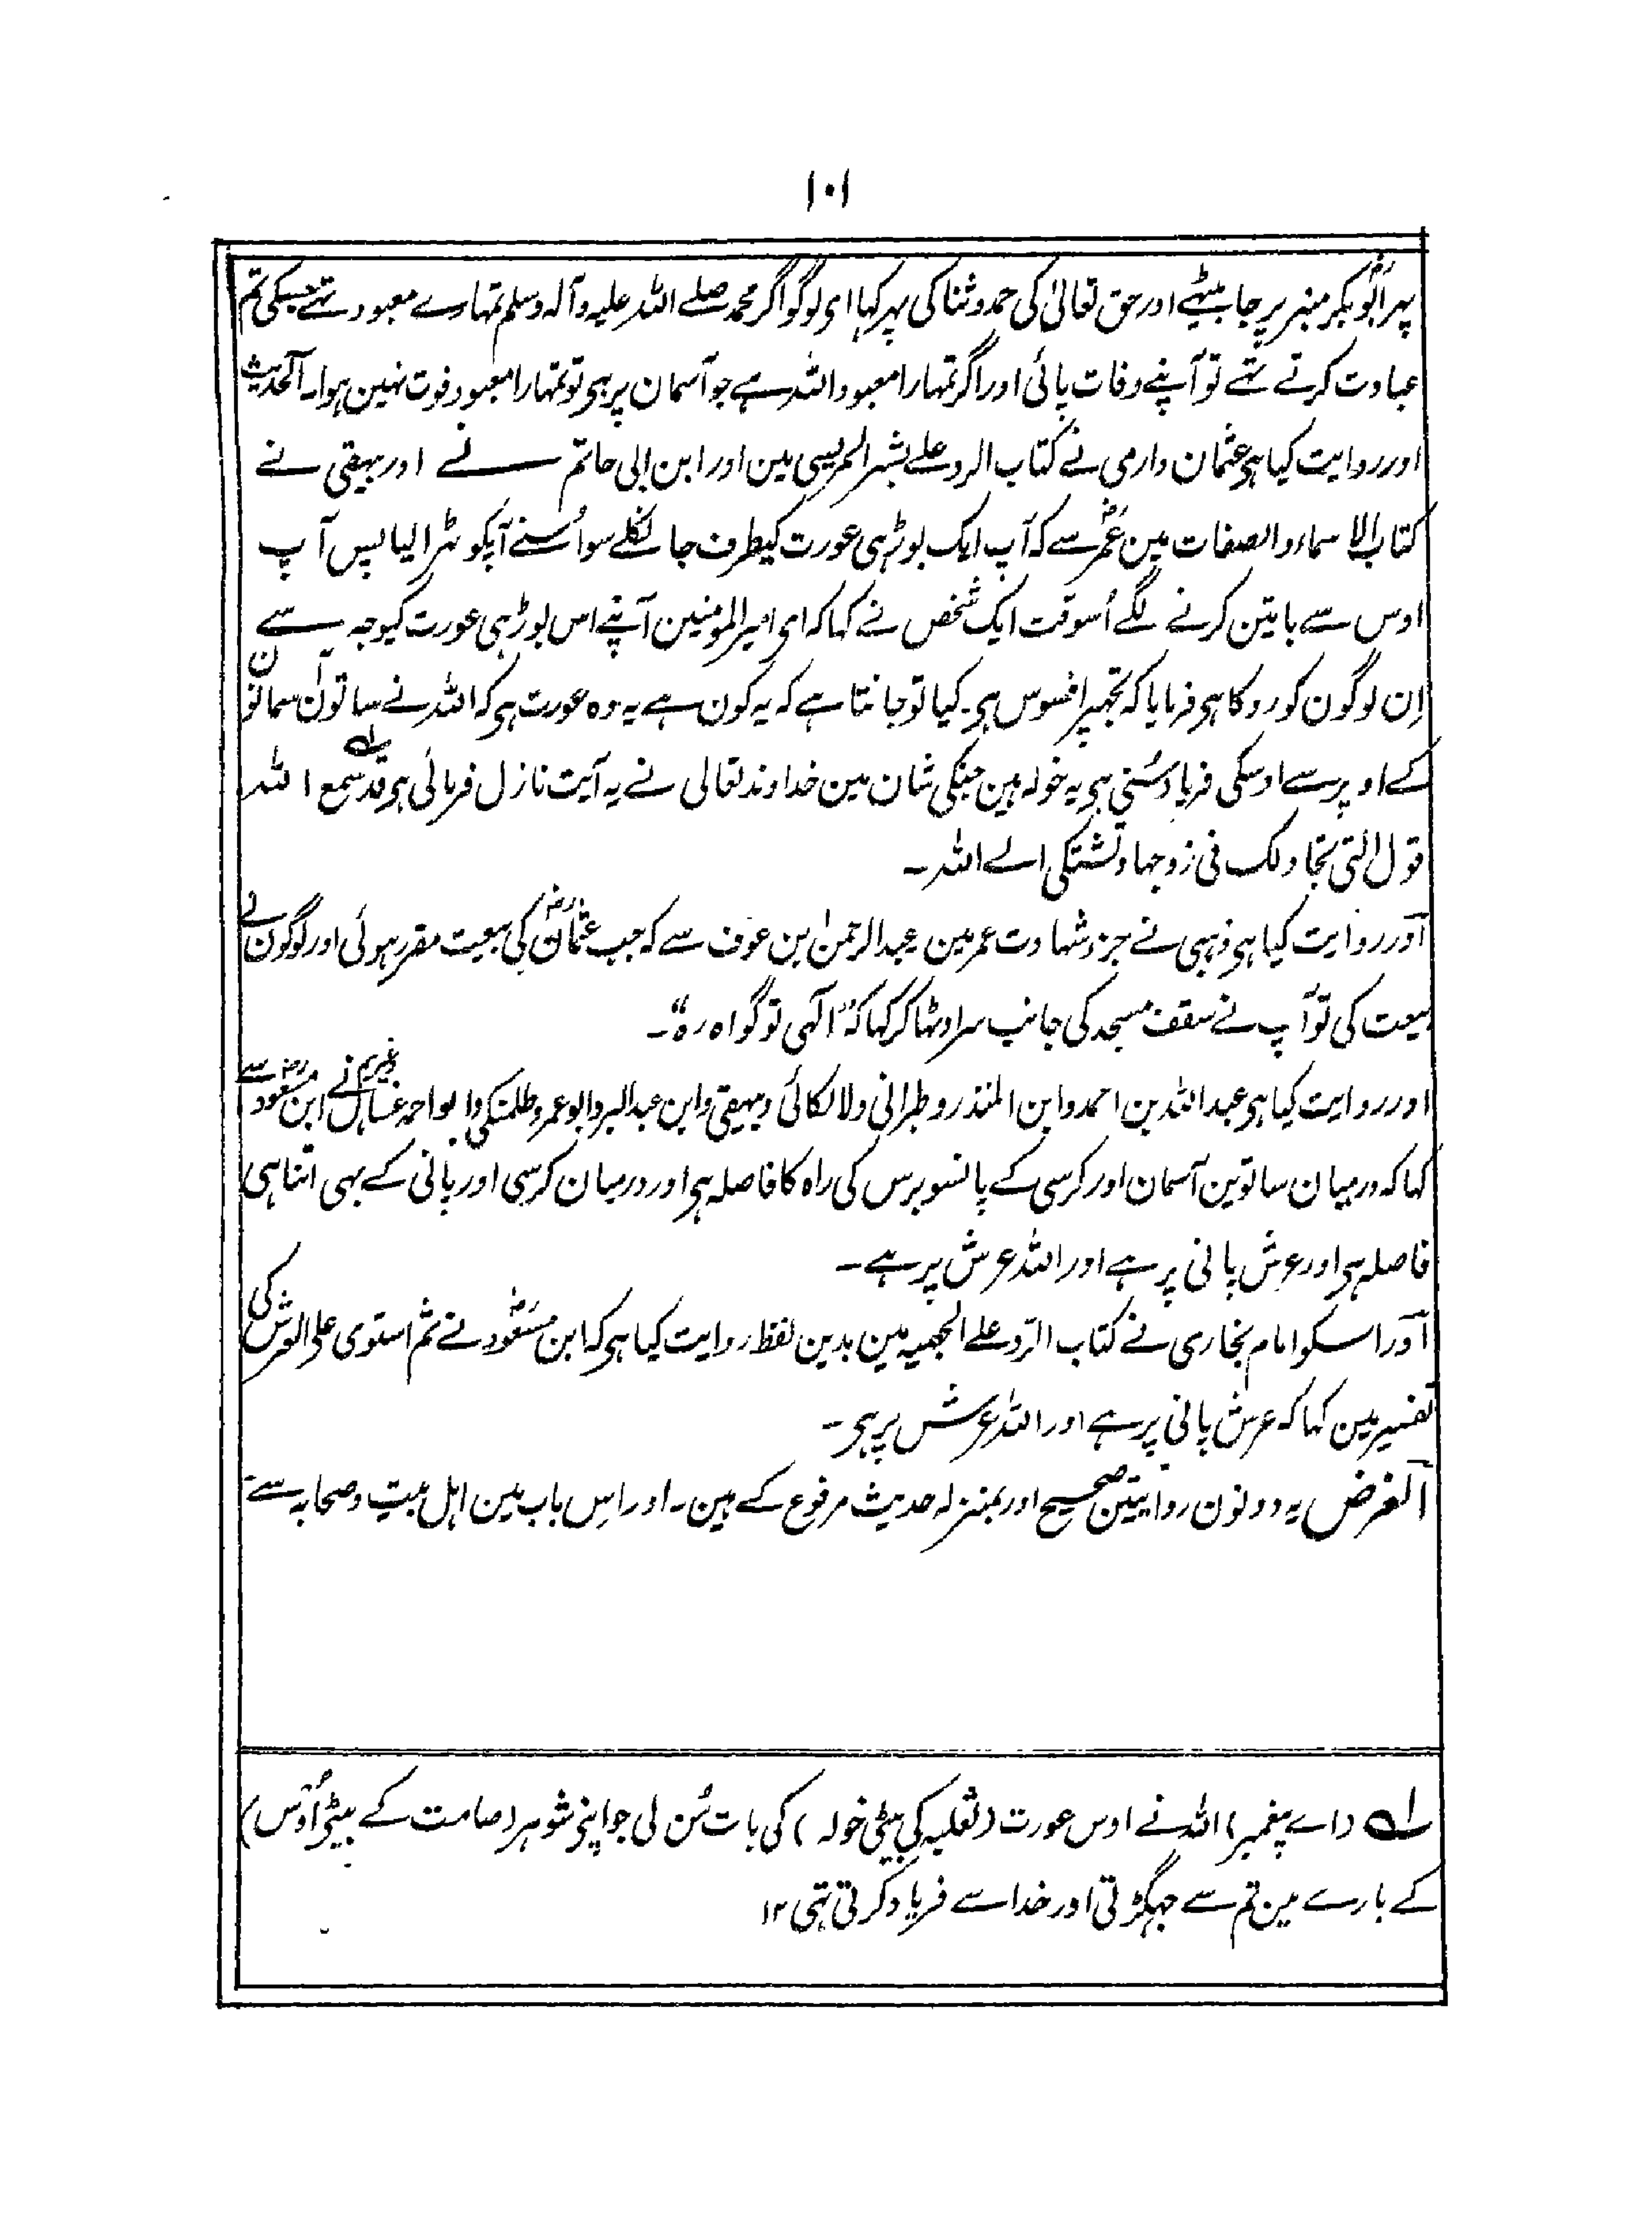 ۱۰۱
پہر ابوؓبکر منبر پر جا بیٹہے اور حق تعالیٰ کی حمد و ثنا کی پہر کہا ای لوگو اگر محمد صلے اللہ علیہ وآلہ وسلم تمہارے معبود تہے جسکی تم
عبادت کرتے تہے تو آپنے وفات پائی اور اگر تمہارا معبود اللہ ہے جو آسمان پر ہی تو تمہارا معبود فوت نہین ہوا۔ الحدیث
اور روایت کیا ہی عثمان دارمی نے کتاب الرد علے بشر المریسی مین اور ابن ابی حاتم نے اور بیہقی نے
کتاب الاسماء والصفات مین عمرؓ سے کہ آپ ایک بوڑہی عورت کیطرف جا نکلے سو اُسنے آپکو ٹہرا لیا پس آپ
اوس سے باتین کرنے لگے اُسوقت ایک شخص نے کہا کہ ای امیر المومنین آپنے اس بوڑہی عورت کیوجہ سے
اِن لوگون کو روکا ہی فرمایا کہ تجہپر افسوس ہی۔ کیا تو جانتا ہے کہ یہ کون ہے یہ وہ عورت ہی کہ اللہ نے ساتون آسمانون
کے اوپر سے اوسکی فریاد سُنی ہی یہ خولہ ہین جنکی شان مین خداوند تعالی نے یہ آیت نازل فرمائی ہی قد سمع اللہ
قول التی تجادلک فی زوجہا وتشتکی الے اللہ۔
اَور روایت کیا ہی ذہبی نے جزو شہادت عمر مین عبدالرحمٰن بن عوف سے کہ جب عثمانؓ کی بیعت مقرر ہوئی اور لوگون نے
بیعت کی تو آپ نے سقف مسجد کی جانب سر اوٹہا کر کہا کہ "الٰہی تو گواہ رہ"۔
اور روایت کیا ہی عبداللہ بن احمد و ابن المنذر و طبرانی ولالکائی و بیہقی و ابن عبدالبر و ابو عمر و طلمنکی و ابو احمد عسال وغیرہم نے ابن مسعودؓ سے
کہا کہ درمیان ساتوین آسمان اور کرسی کے پانسو برس کی راہ کا فاصلہ ہی اور درمیان کرسی اور پانی کے بہی اتنا ہی
فاصلہ ہی اور عرش پانی پر ہے اور اللہ عرش پر ہے۔
اَور اسکو امام بخاری نے کتاب الرّد علے الجہمیہ مین بدین لفظ روایت کیا ہی کہ ابن مسعودؓ نے ثم استوی علی العرش کی
تفسیر مین کہا کہ عرش پانی پر ہے اور اللہ عرش پر ہی۔
اَلغرض یہ دونون روایتین صحیح اور بمنزلہ حدیث مرفوع کے ہین۔ اور اِس باب مین اہل بیت و صحابہ سے
لہ (اے پیغمبر) اللہ نے اوس عورت (ثعلبہ کی بیٹی خولہ) کی بات سُن لی جو اپنے شوہر (صامت کے بیٹے اُوسؓ)
کے بارے مین تم سے جہگڑتی اور خدا سے فریاد کرتی تہی ۱۲